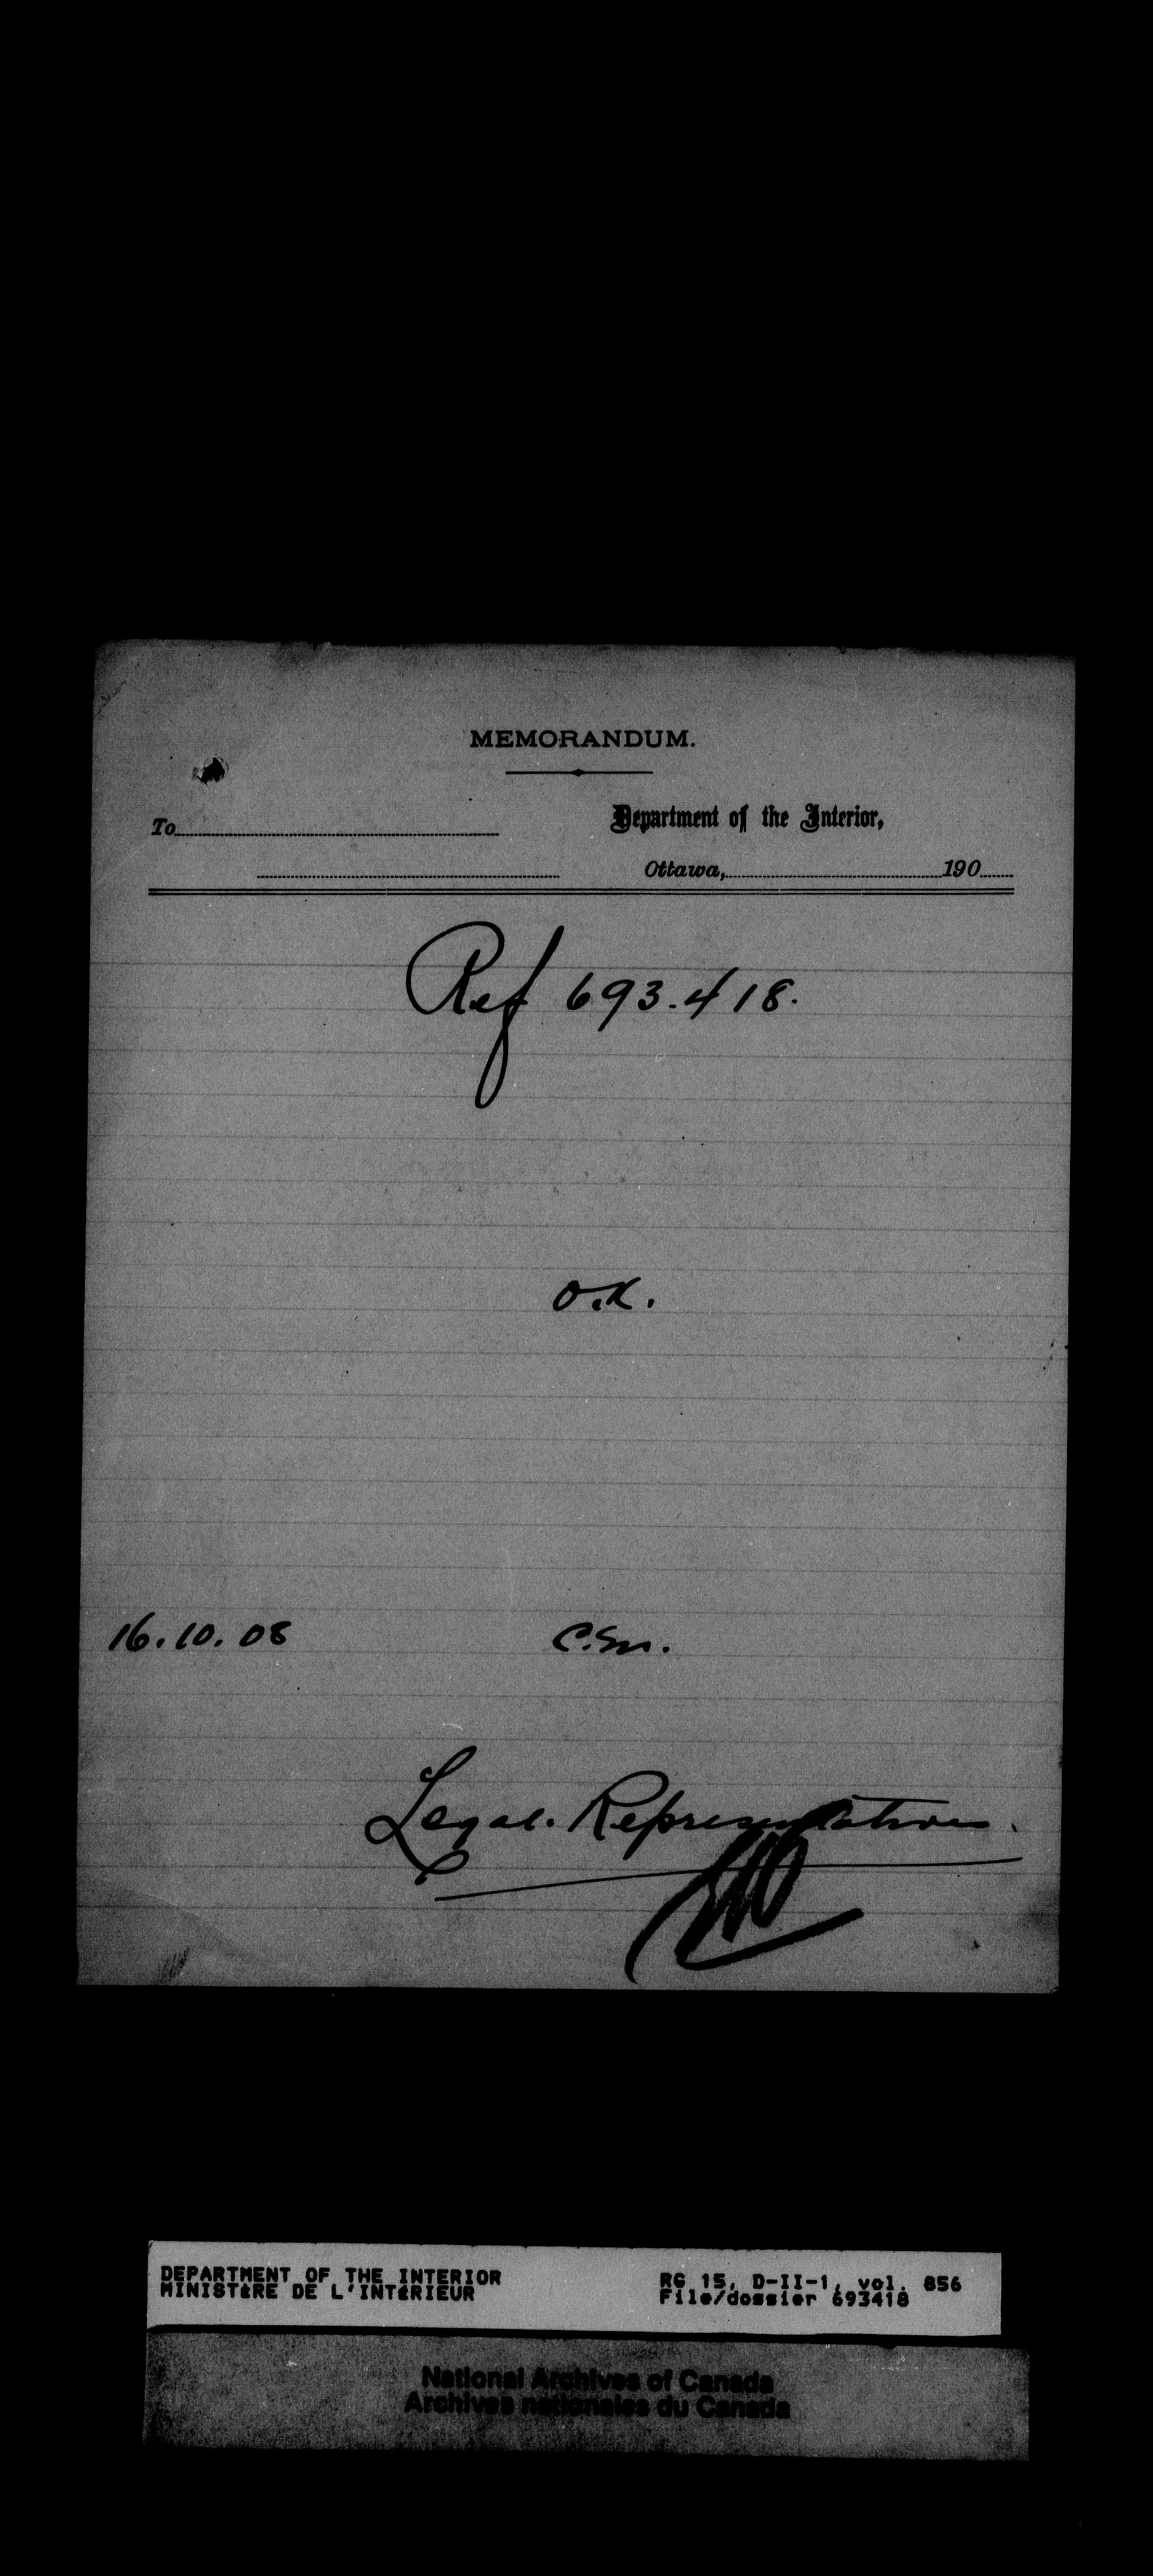 MEMORANDUM.
To
Department of the Interior,
Ottawa, 190
Ref 693.418.
O.K.
16.10.08
Legal. Representatives.
DEPARTMENT OF THE INTERIOR
MINISTÈRE DE L'INTÉRIEUR
RG 15, D-II-1, vol. 856
File/dossier 693418
National Archives of Canada
Archives nationales du Canada